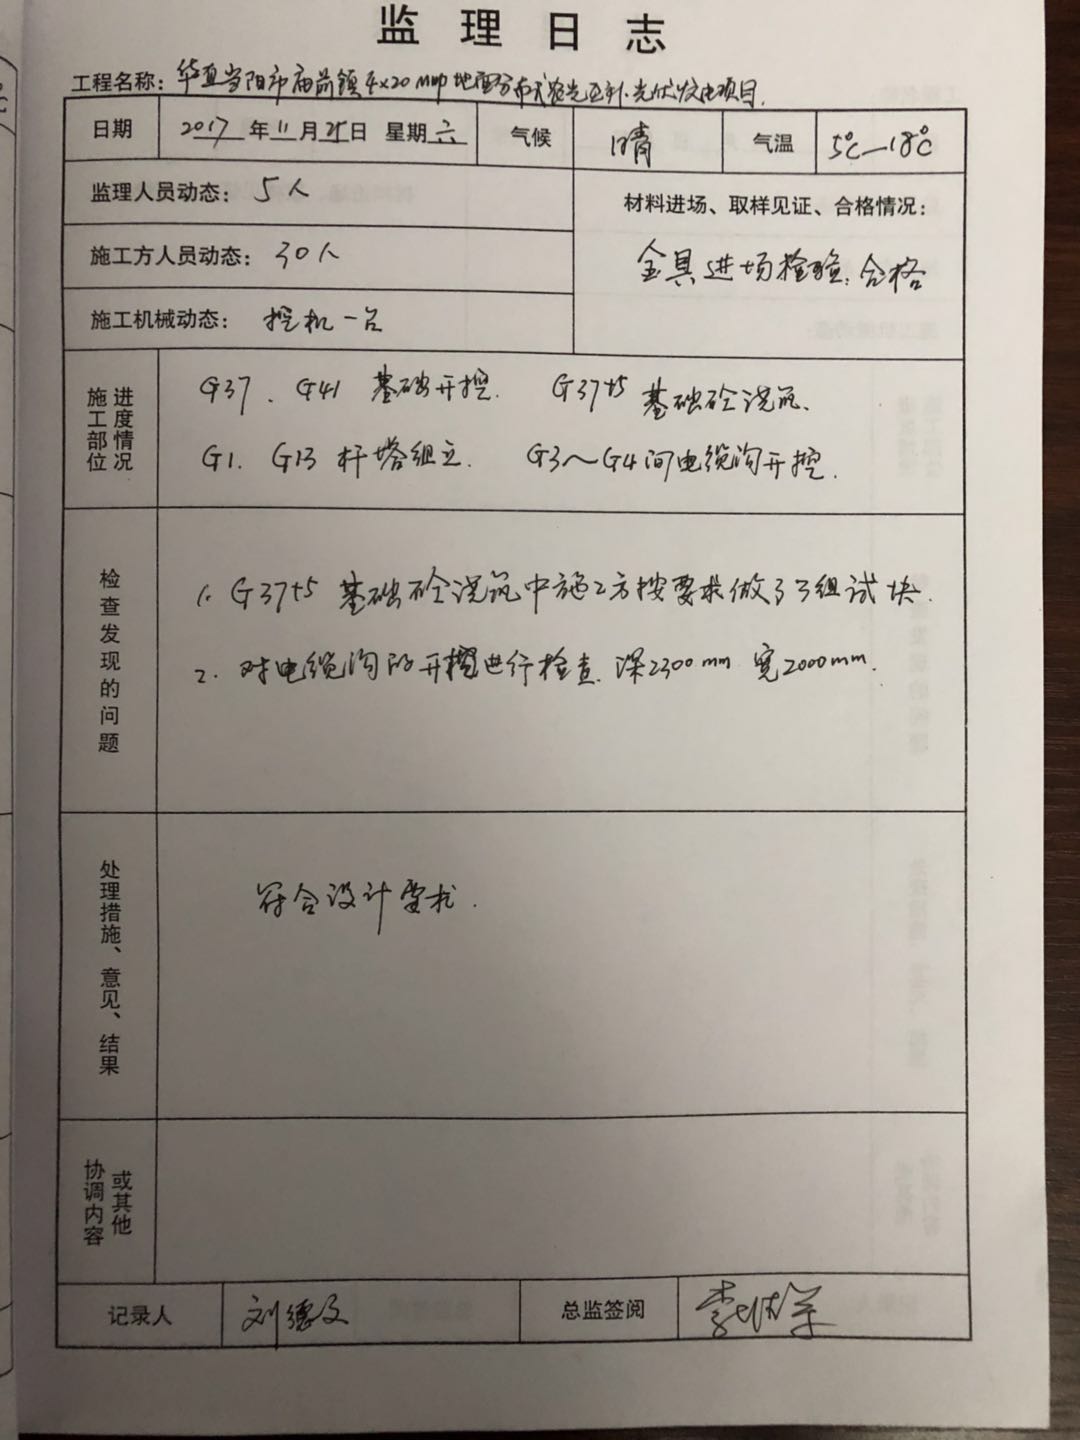 监理日志
工程名称：华直当阳市庙前镇4×20MWP地面分布式农光互补光伏发电项目.
日期 2017年11月25日 星期六 气候 晴 气温 5℃—18℃
监理人员动态：5人
材料进场、取样见证、合格情况：
施工方人员动态：30人
金具进场检验：合格
施工机械动态：挖机一台
进度情况
施工部位
G37、G41 基础开挖. G37+5 基础砼浇筑.
G1、G13 杆塔组立. G3～G4间电缆沟开挖.
检查发现的问题
1. G37+5 基础砼浇筑中施工方按要求做了3组试块.
2. 对电缆沟的开挖进行检查. 深2300mm 宽2000mm.
处理措施、意见、结果
符合设计要求.
或其他
协调内容
记录人 刘德文 总监签阅